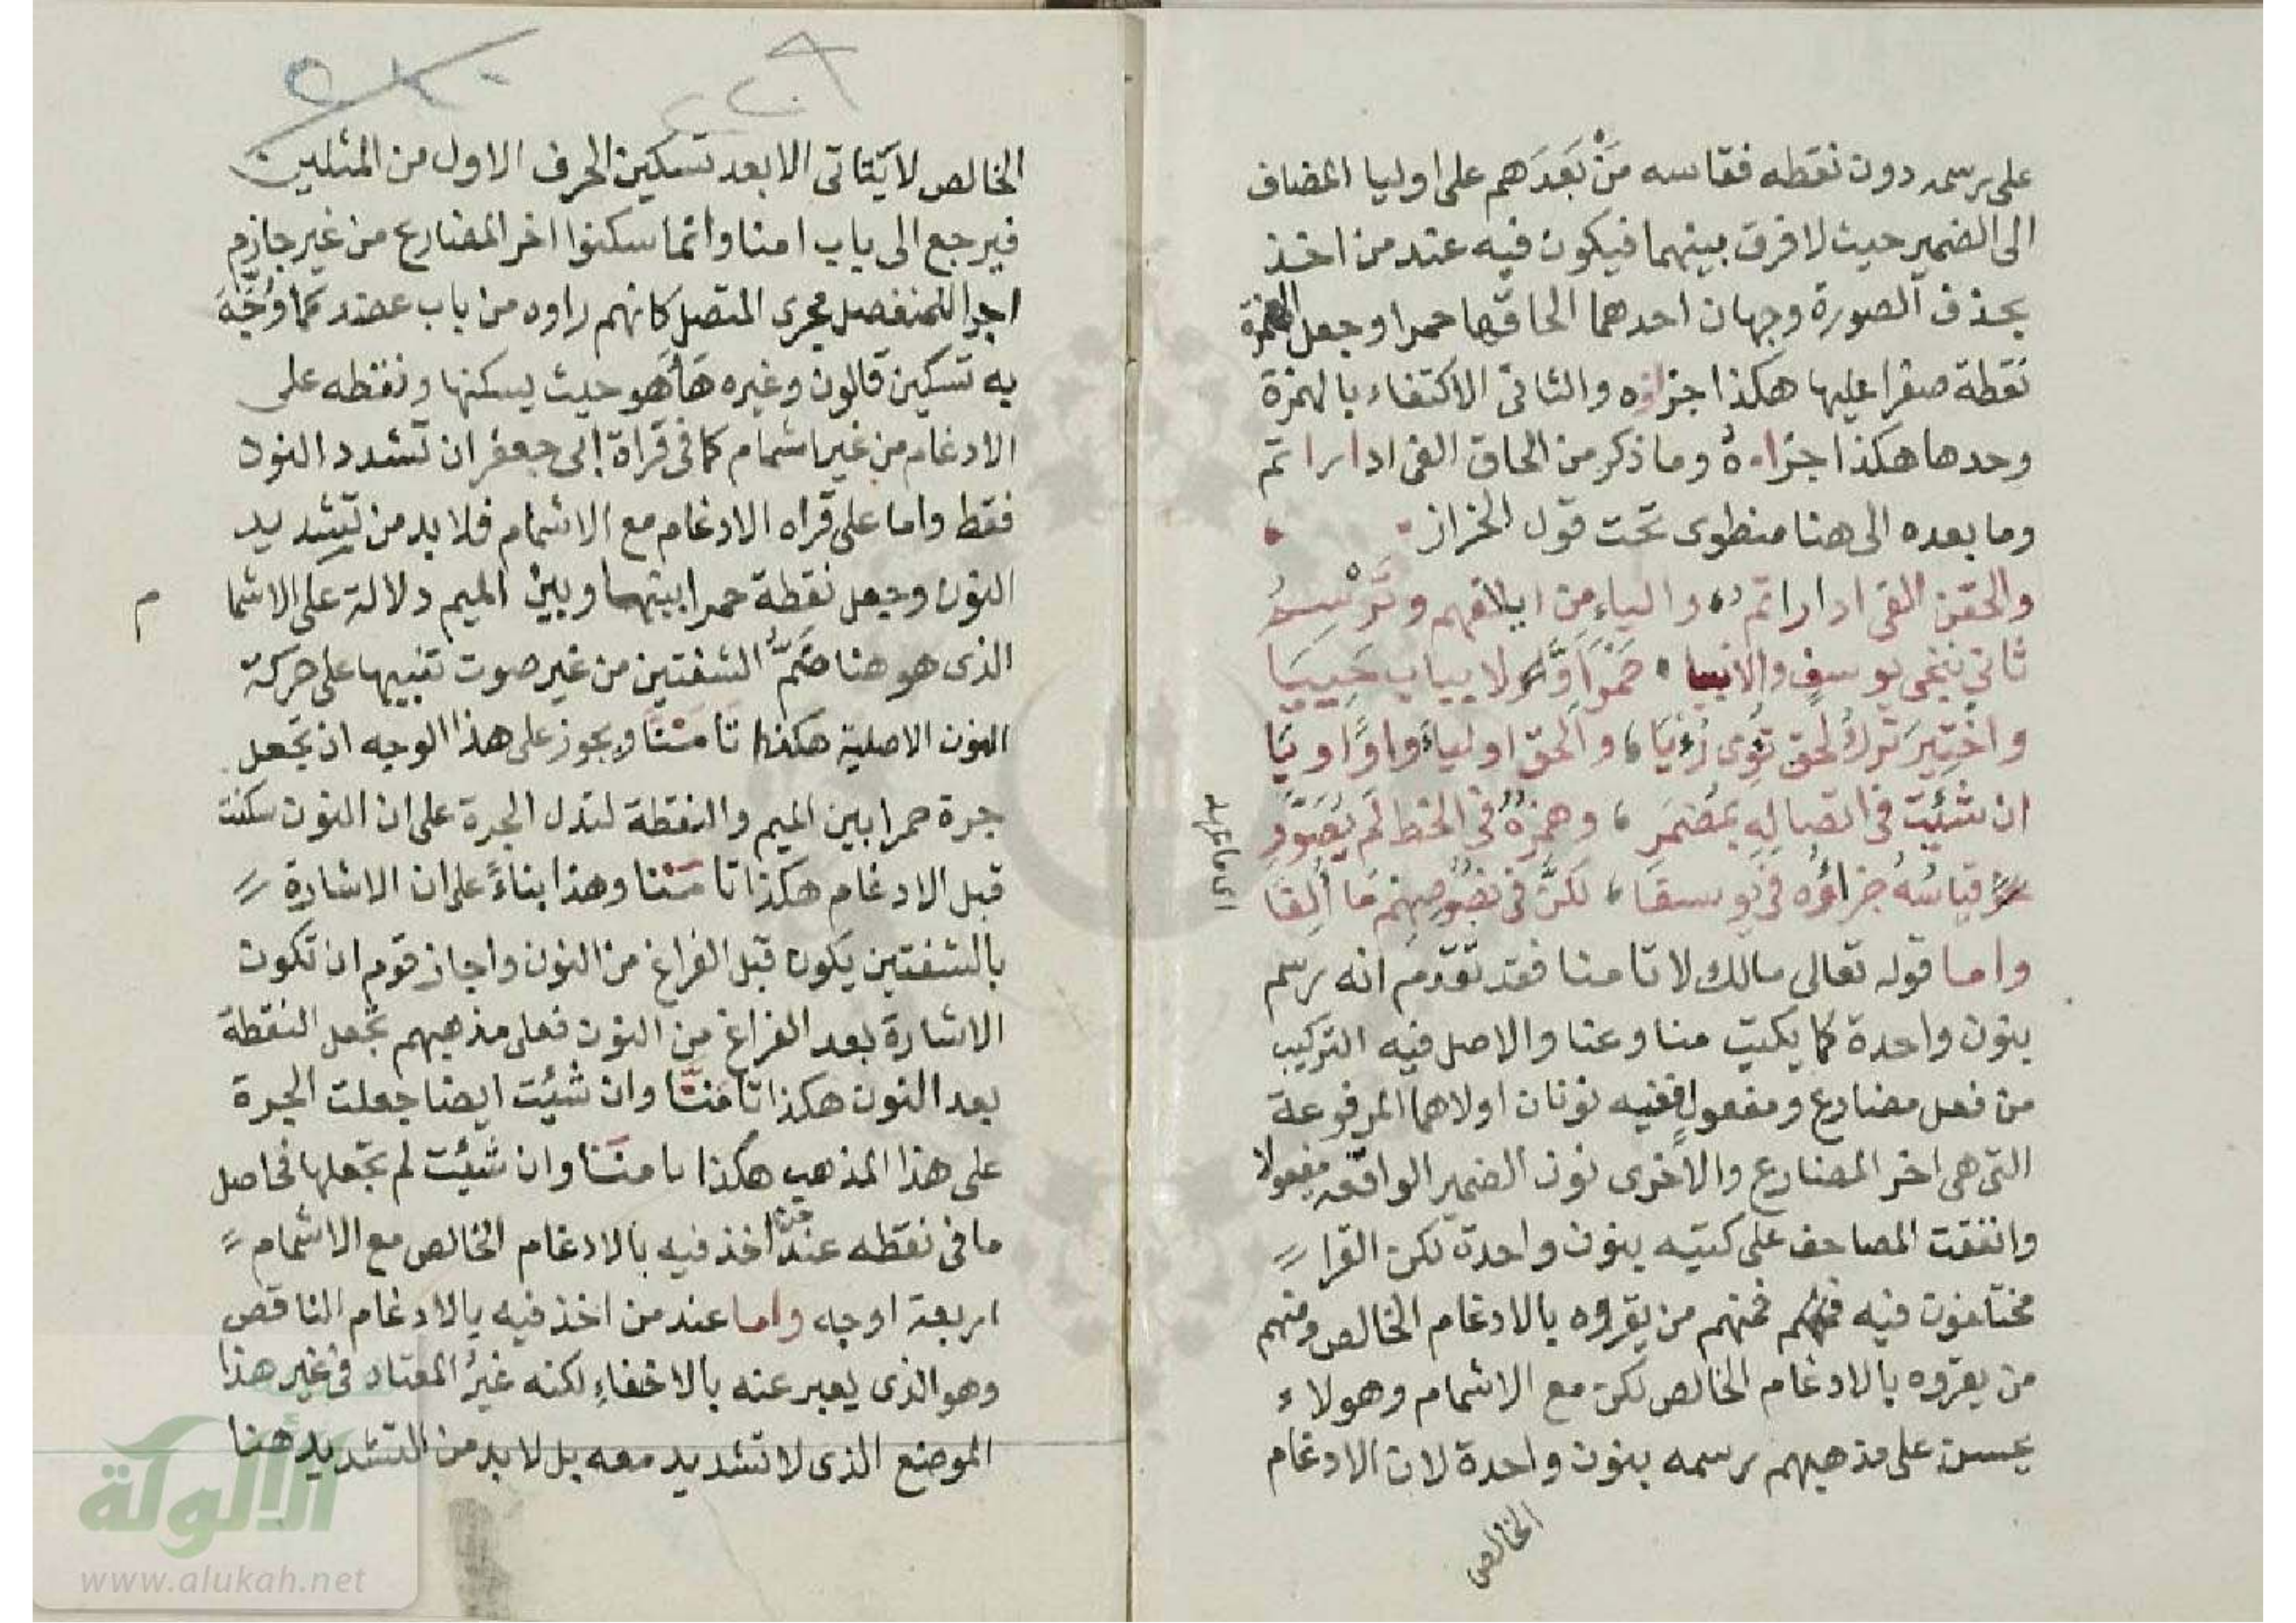 على رسمه دون نقطه فقاسه مَنْ بَعَدَهم على اوليا المضاف
الى الضمير حيث لا فرق بينهما فيكون فيه عند من اخذ
بحذف الصورة وجهان احدهما الحاقها حمرا وجعل الهمزة
نقطة صفرا عليها هكذا جزاؤه والثانى الاكتفاء بالهمزة
وحدها هكذا جزاءهُ وما ذكر من الحاق الفى ادارا تم
وما بعده الى هنا منطوى تحت قول الخراز
والحقن الفى ادارا تم والياءِ من ايلافهم وتَرْسِمُ
ثانى ننجى يوسف والانبيا حَمْرا
واخْتِيرَ تركُ لحق تؤى رُءيَا والحق اولياءَ واوًا او يَا
ان شئتَ فى اتصالِهِ بمُضمَرِ وهمزُهُ فى الخط لم يُصَوَّرِ
قياسُهُ جزاؤُه فى يوسفا لكنَّ فى نصوصِهِم مَا أُلِفَا
اى ما
واما قوله تعالى مالك لا تامنا فقد تقدم انه رسم
بنون واحدة كما يكتب منا وعنا والاصل فيه التركيب
من فعل مضارع ومفعول ففيه نونان اولاهما المرفوعة
التى هى اخر المضارع والاخرى نون الضمير الواقعة مفعولا
واتفقت المصاحف على كتبه بنون واحدة لكن القرا
مختلفون فيه فمنهم من يقروه بالادغام الخالص ومنهم
من يقروه بالادغام الخالص لكن مع الاشمام وهولاء
يحسن على مذهبهم رسمه بنون واحدة لان الادغام
الخالص
الخالص لا يتاتى الا بعد تسكين الحرف الاول من المثلين
فيرجع الى باب امنا وانما سكنوا اخر المضارع من غير جازم
اجرا للمنفصل مجرى المتصل كانهم راوه من باب عضد كما وُجِّهَ
به تسكين قالون وغيره هَاهُو حيث يسكنها ونقطه على
الادغام من غير اشمام كما فى قراة ابى جعفر ان تشدد النون
فقط واما على قراه الادغام مع الاشمام فلا بد من تشديد
النون وجعل نقطة حمرا بينها وبين الميم دلالة على الاشما
م
الذى هو هنا ضَمُّ الشفتين من غير صوت تنبيها على حركة
النون الاصلية هكذا تامننا ويجوز على هذا الوجه ان تجعل
جرة حمرا بين الميم والنقطة لتدل الجرة على ان النون سكنت
قبل الادغام هكذا تامننا وهذا بناءً على ان الاشارة
بالشفتين يكون قبل الفراغ من النون واجاز قوم ان تكون
الاشارة بعد الفراغ من النون فعلى مذهبهم تجعل النقطة
بعد النون هكذا تامننا وان شئت ايضا جعلت الجرة
على هذا المذهب هكذا تامننا وان شئت لم تجعلها فحاصل
ما فى نقطه عند من اخذ فيه بالادغام الخالص مع الاشمام
اربعة اوجه واما عند من اخذ فيه بالادغام الناقص
وهو الذى يعبر عنه بالاخفاءِ لكنه غيرُ المعتاد فى غير هذا
الموضع الذى لا تشديد معه بل لا بد من التشديد هنا
الألوكة
www.alukah.net